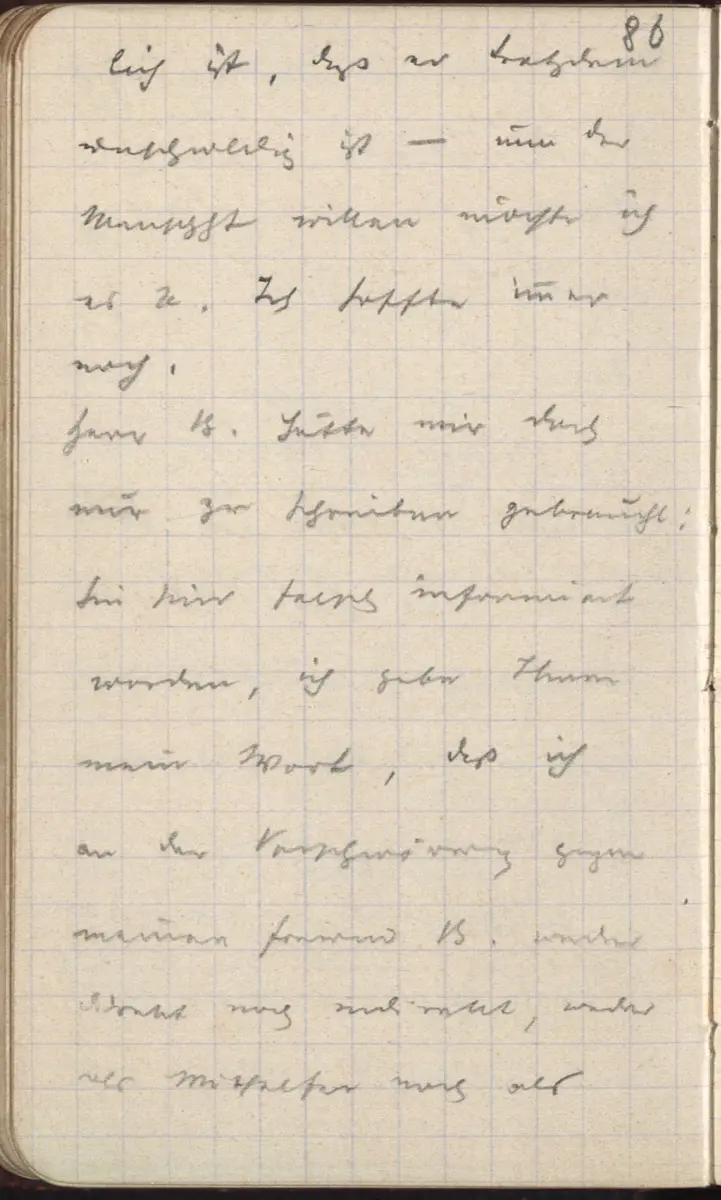 86
lich ist, daß er trotzdem
unschuldig ist — nun der
willen möchte ich
es . Ich hoffte immer
noch.
Herr B. hätte mir doch
nur zu schreiben gebraucht:
Sie sind falsch informiert
worden, ich gebe Ihnen
mein Wort, daß ich
an der Verschwörung gegen
meinen Freund B. weder
direkt noch indirekt, weder
als Mithelfer noch als